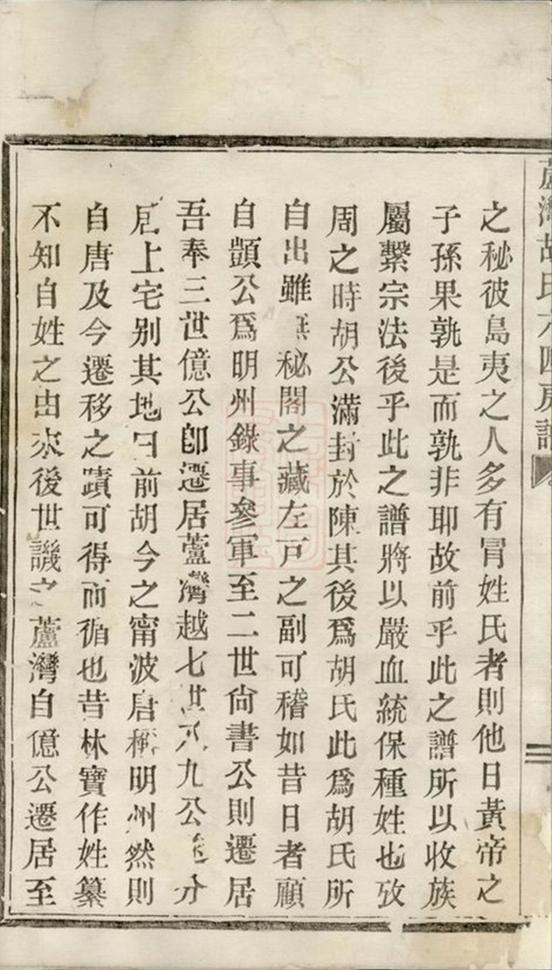 蘆灣胡氏六四房譜
之秘彼島夷之人多有冒姓氏者則他日黃帝之
子孫果孰是而孰非耶故前乎此之譜所以收族
屬繫宗法後乎此之譜將以嚴血統保種姓也攷
周之時胡公滿封於陳其後爲胡氏此爲胡氏所
自出雖無秘閣之藏左戸之副可稽如昔日者顧
自顗公爲明州錄事參軍至二世尙書公則遷居
吾奉三世億公卽遷居蘆灣越七世九公分
居上宅別其地曰前胡今之甯波唐稱明州然則
自唐及今遷移之蹟可得而循也昔林寶作姓纂
不知自姓之由來後世譏之蘆灣自億公遷居至